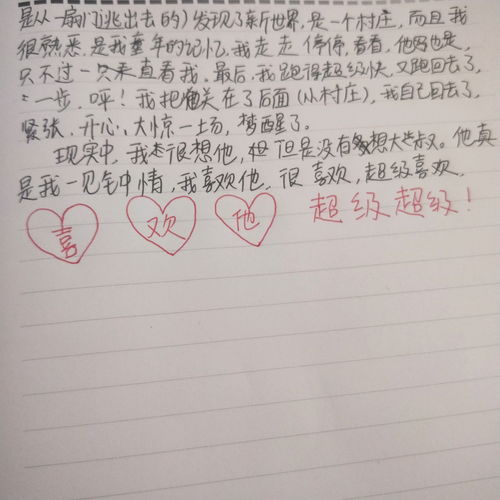 是从一扇门逃出去的)发现了新世界,是一个村庄,而且我
很熟悉,是我童年的记忆,我走走停停,看看,他也是,
只不过一只来直看我,最后,我跑得超级快,又跑回去了,
一步,呼!我把他关在了后面(从村庄),我自己回去了,
紧张、开心、大惊一场,梦醒了。
现实中,我很想他,但是没有想大些叔。他真
是我一见钟情,我喜欢他,很喜欢,超级喜欢,
喜 欢 他 超级超级!